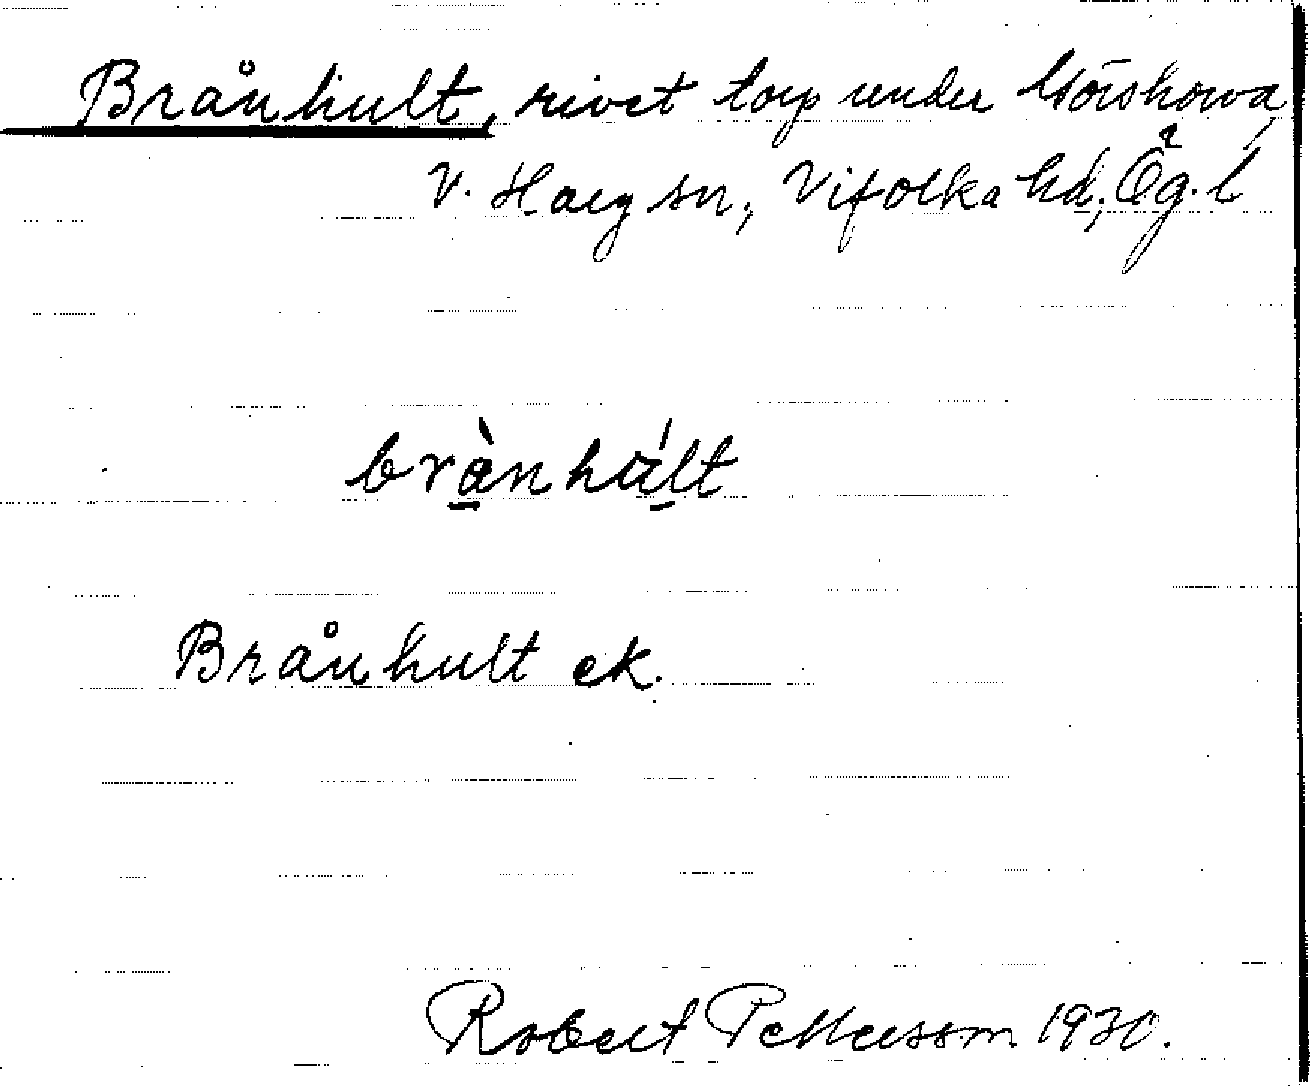 Brånhult, rivet torp under Görshowa,
V. Harg sn, Vifolka hd, Ög. l
brànhúlt
Brånhult ek.
Robert Pettersson 1930.